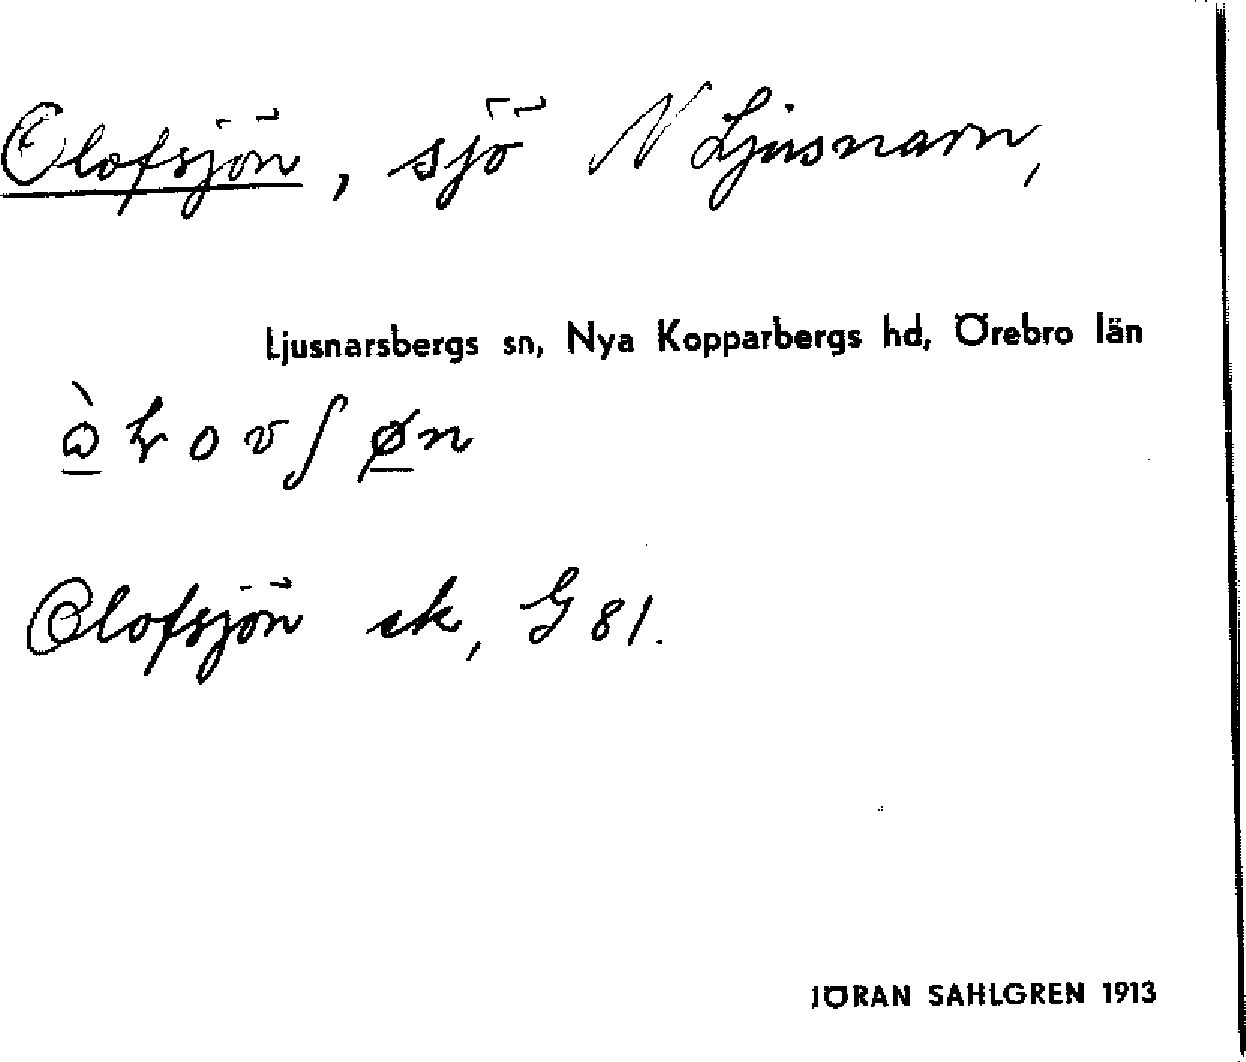 Olofsjön, sjö N Ljusnarn,
Ljusnarsbergs sn, Nya Kopparbergs hd, Örebro län
Olofsjön ek, G 81.
JÖRAN SAHLGREN 1913